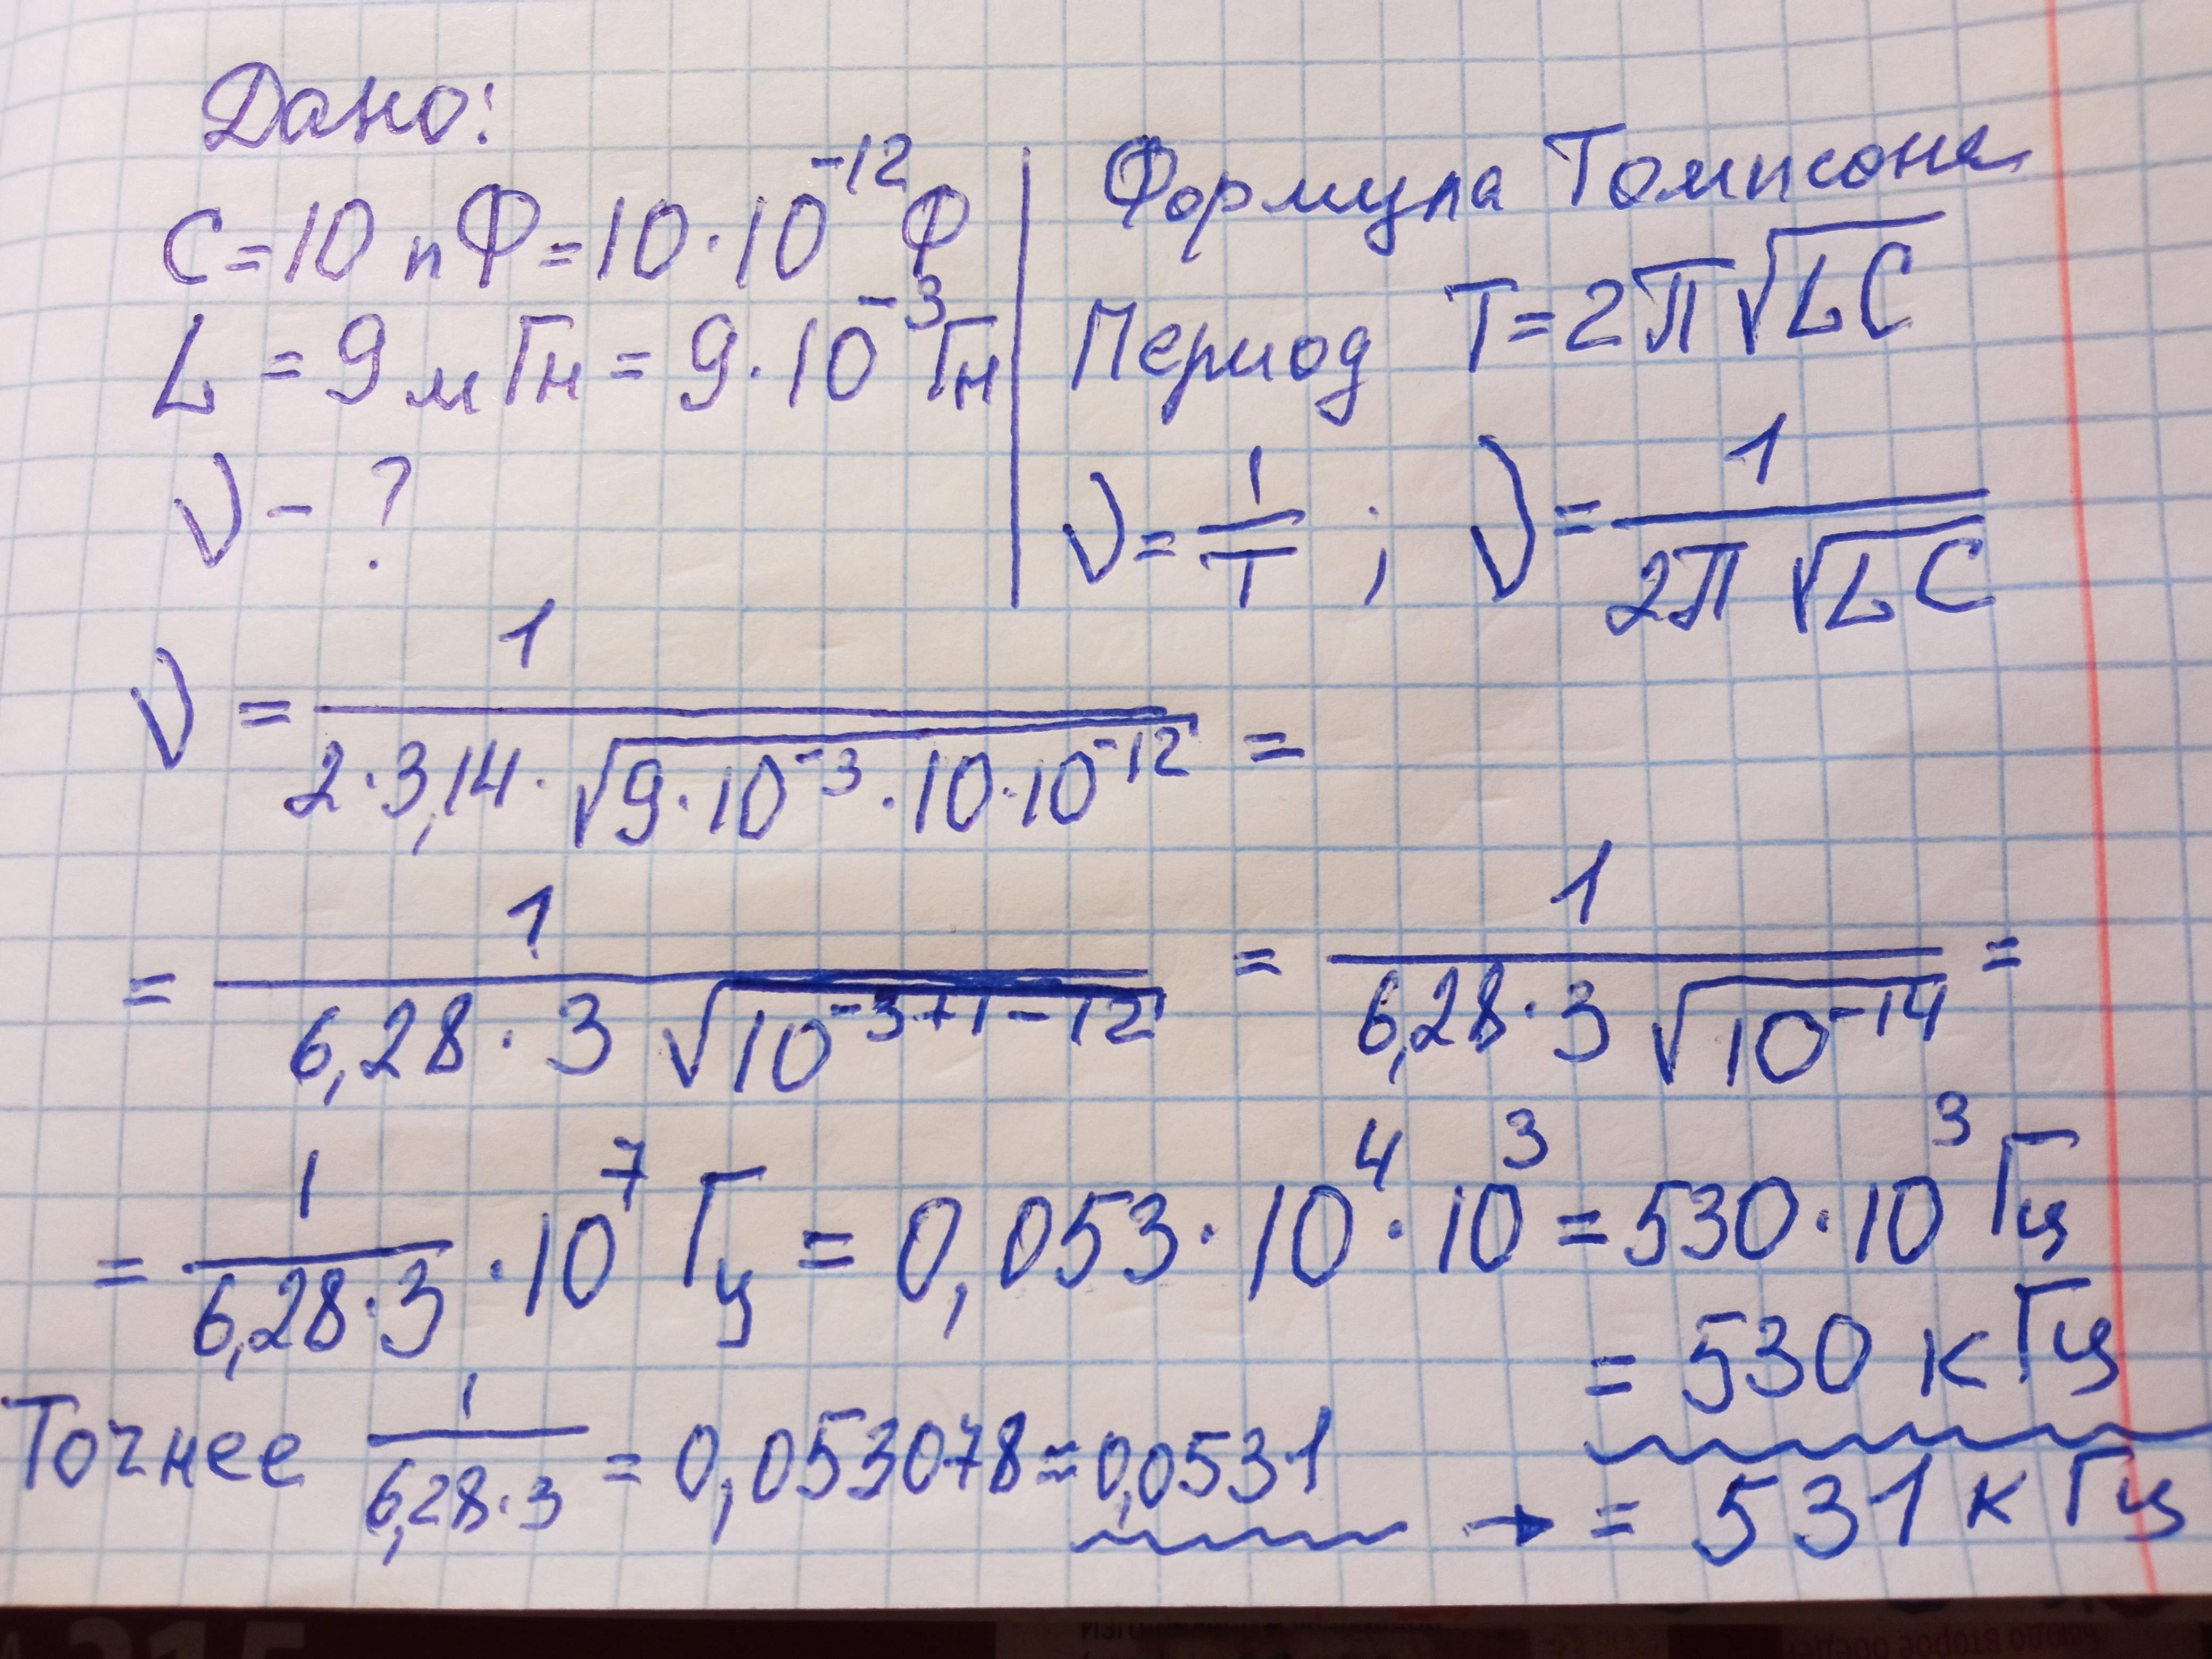 Дано:
C = 10 пФ = 10·10⁻¹² Ф
L = 9 мГн = 9·10⁻³ Гн
ν - ?
Формула Томпсона
Период T = 2π√LC
ν = 1/T ; ν = 1/2π√LC
ν = 1/2·3,14·√9·10⁻³·10·10⁻¹² =
= 1/6,28·3√10⁻³⁺¹⁻¹² = 1/6,28·3√10⁻¹⁴ =
= 1/6,28·3 · 10⁷ Гц = 0,053·10⁴·10³ = 530·10³ Гц
= 530 кГц
Точнее 1/6,28·3 = 0,053078 ≈ 0,0531 → = 531 кГц